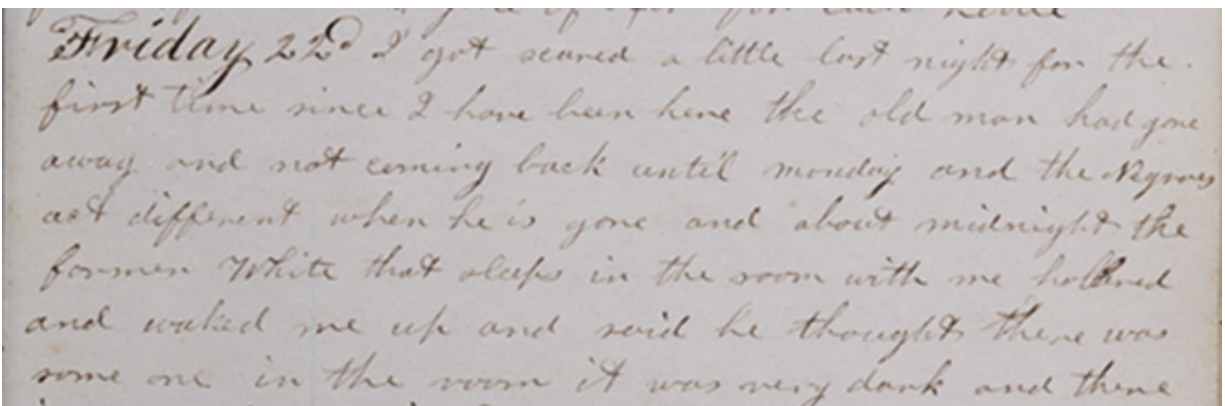 Friday 22d I got scared a little last night for the
first time since I have been here the old man had gone
away and not coming back until monday and the Negroes
act different when he is gone and about midnight the
formen White that sleeps in the room with me hollered
and waked me up and said he thought there was
some one in the room it was very dark and there